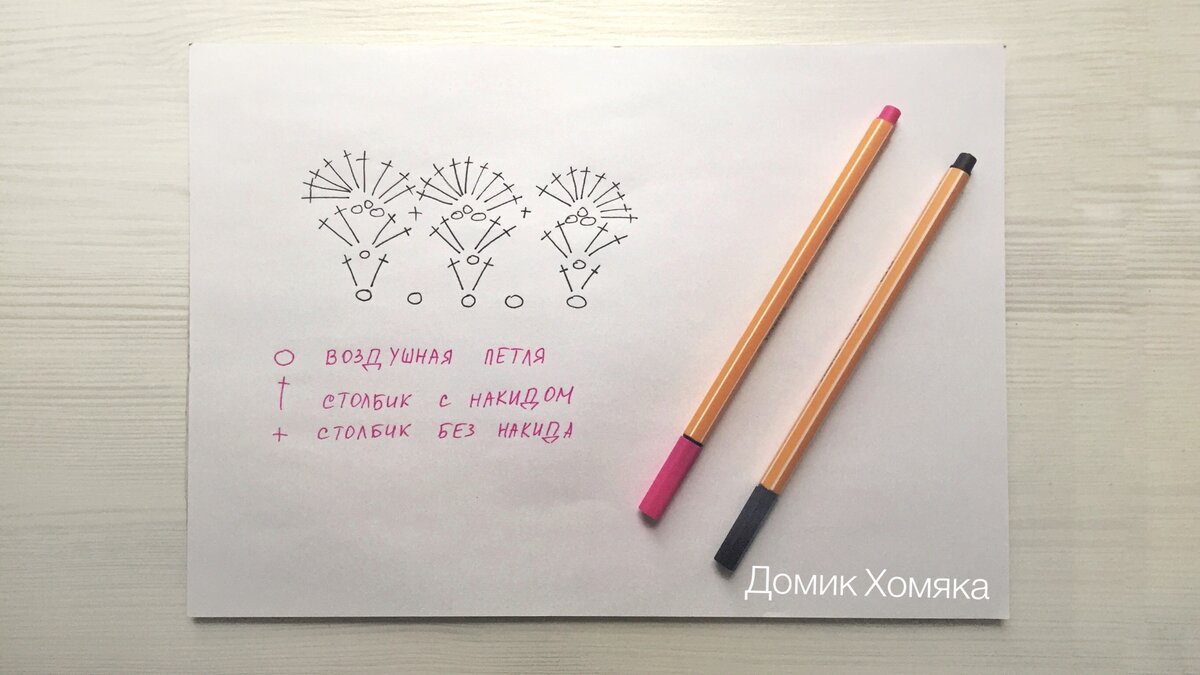 ВОЗДУШНАЯ ПЕТЛЯ
СТОЛБИК С НАКИДОМ
СТОЛБИК БЕЗ НАКИДА
Домик Хомяка